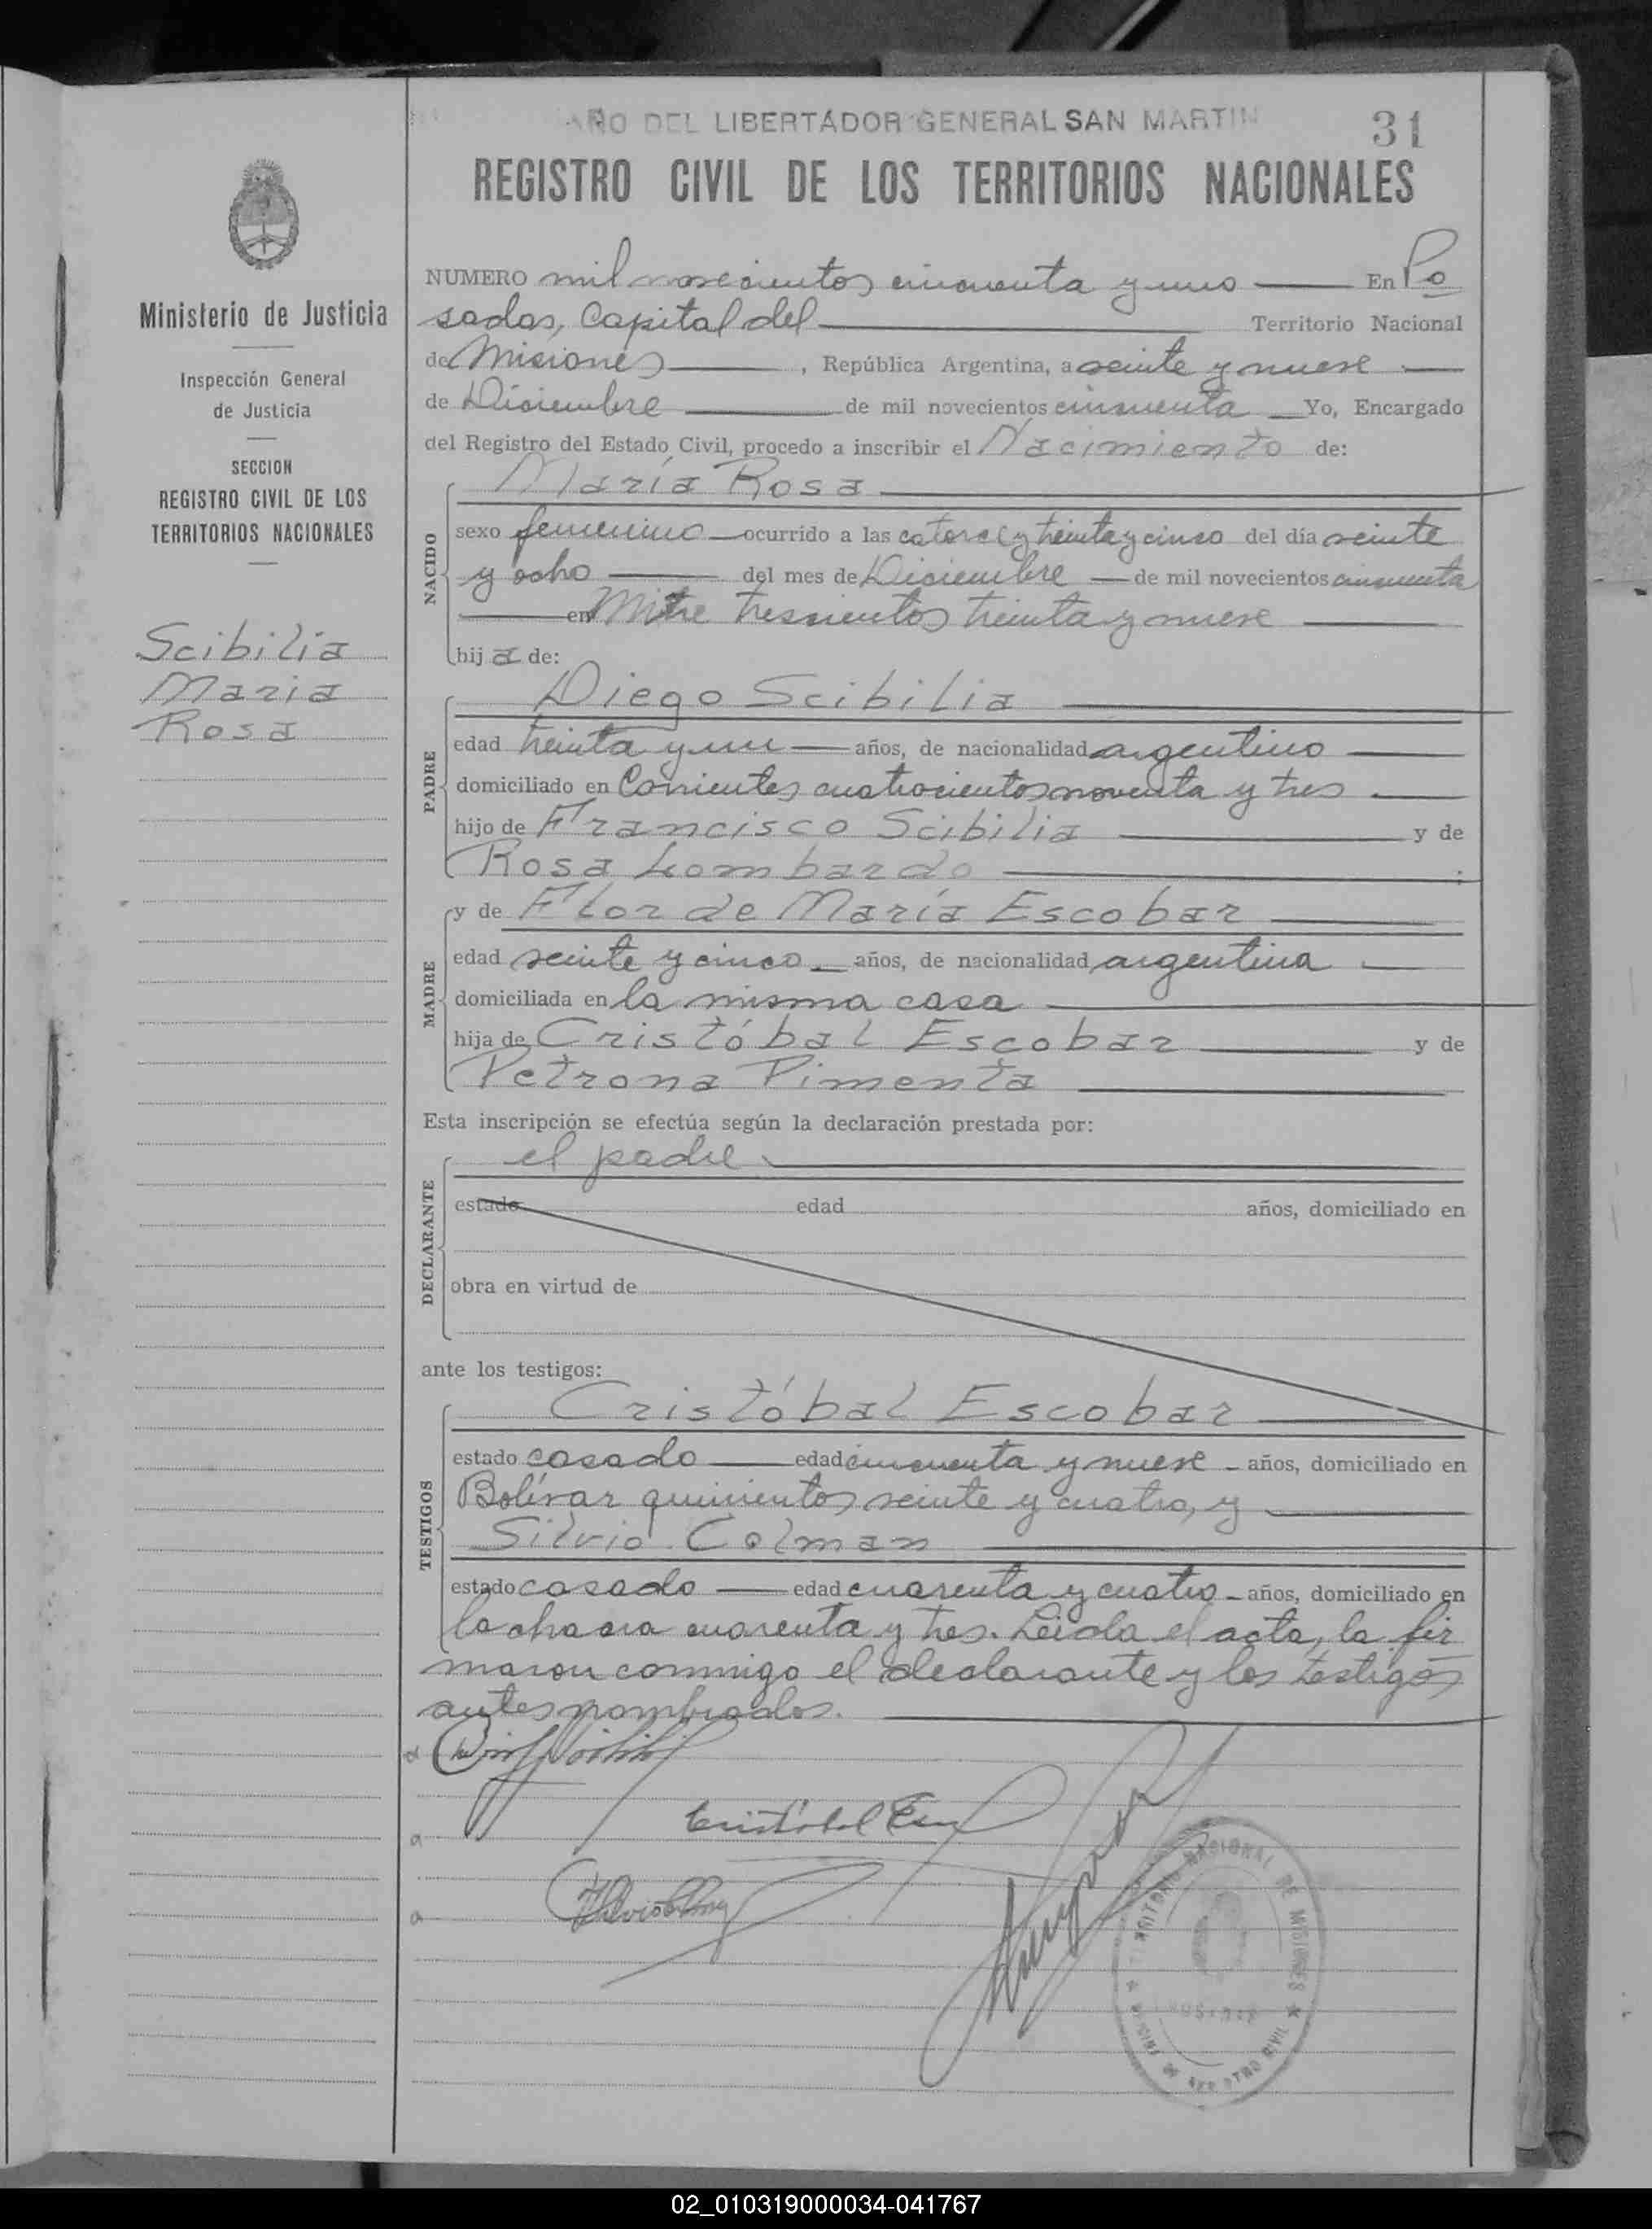 AÑO DEL LIBERTADOR GENERAL SAN MARTIN
31
REGISTRO CIVIL DE LOS TERRITORIOS NACIONALES
Ministerio de Justicia
Inspección General
de Justicia
SECCION
REGISTRO CIVIL DE LOS
TERRITORIOS NACIONALES
Scibilia
Maria
Rosa
NUMERO mil novecientos cincuenta y uno En Po
sadas, Capital del Territorio Nacional
de Misiones, República Argentina, a veinte y nueve
de Diciembre de mil novecientos cincuenta Yo, Encargado
del Registro del Estado Civil, procedo a inscribir el Nacimiento de:
María Rosa
NACIDO
sexo femenino ocurrido a las catorce y treinta y cinco del día veinte
y ocho del mes de Diciembre de mil novecientos cincuenta
en Mitre trescientos treinta y nueve
hija de:
Diego Scibilia
PADRE
edad treinta y un años, de nacionalidad argentino
domiciliado en Corrientes cuatrocientos noventa y tres
hijo de Francisco Scibilia y de
Rosa Lombardo ;
y de Flor de María Escobar
MADRE
edad veinte y cinco años, de nacionalidad argentina
domiciliada en la misma casa
hija de Cristóbal Escobar y de
Petrona Pimenta
Esta inscripción se efectúa según la declaración prestada por:
el padre
DECLARANTE
estado edad años, domiciliado en
obra en virtud de
ante los testigos:
Cristóbal Escobar
TESTIGOS
estado casado edad cincuenta y nueve años, domiciliado en
Bolívar quinientos veinte y cuatro, y
Silvio Colman
estado casado edad cuarenta y cuatro años, domiciliado en
la chacra cuarenta y tres. Leida el acta, la fir
maron conmigo el declarante y los testigos
antes nombrados.
Cristóbal
TERRITORIO NACIONAL DE MISIONES
POSADAS
REGISTRO CIVIL
02_010319000034-041767